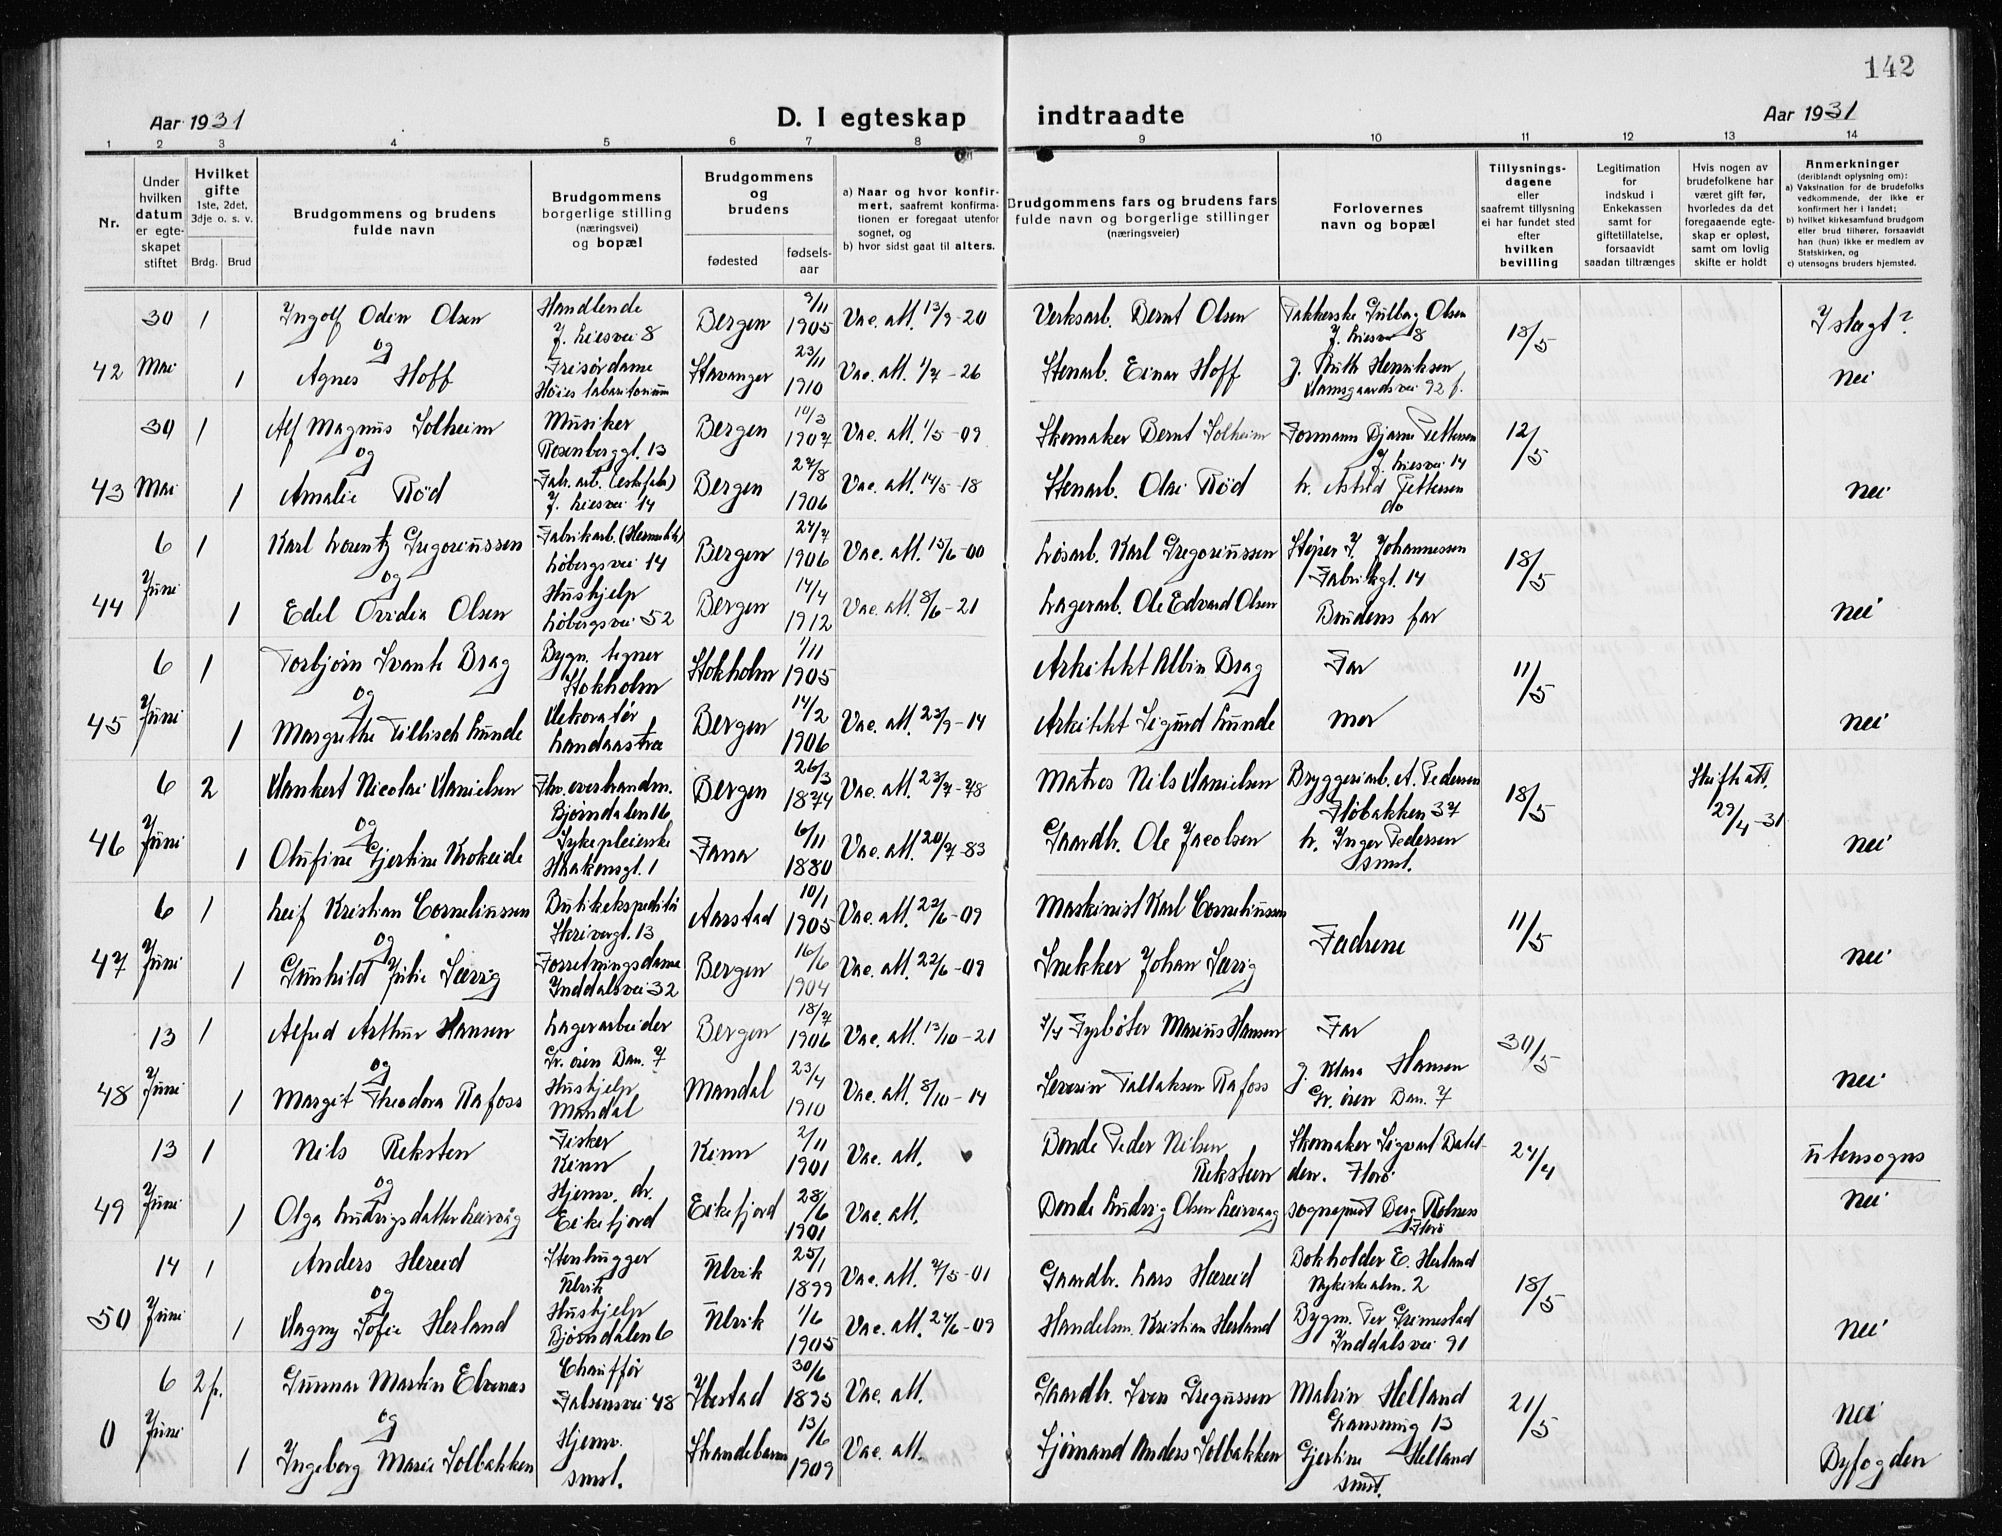 142
Aar 1931
D. I egteskap indtraadte
Aar 1931
1 2 3 4 5 6 7 8 9 10 11 12 13 14
Nr.
Under hvilken datum er egteskapet stiftet
Hvilket gifte 1ste, 2det, 3dje o. s. v.
Brdg. Brud
Brudgommens og brudens fulde navn
Brudgommens borgerlige stilling (næringsvei) og bopæl
Brudgommens og brudens
fødested
fødselsaar
a) Naar og hvor konfirmert, saafremt konfirmationen er foregaat utenfor sognet, og
b) hvor sidst gaat til alters.
Brudgommens fars og brudens fars fulde navn og borgerlige stillinger (næringsveier)
Forlovernes navn og bopæl
Tillysningsdagene eller saafremt tillysning ei har fundet sted efter hvilken bevilling
Legitimation for indskud i Enkekassen samt for giftetillatelse, forsaavidt saadan tiltrænges
Hvis nogen av brudefolkene har været gift før, hvorledes da det foregaaende egteskap er opløst, samt om lovlig skifte er holdt
Anmerkninger (deriblandt oplysning om):
a) Vaksination for de brudefolks vedkommende, der ikke er konfirmert her i landet;
b) hvilket kirkesamfund brudgom eller brud tilhører, forsaavidt han (hun) ikke er medlem av Statskirken, og
c) utensogns bruders hjemsted.
42 30 Mai 1 Ingolf Odin Olsen Handlende J. Liesvei 8 Bergen 9/11 1905 Vac. att. 13/9-20 Verksarb. Bernt Olsen Pakkerske Gulborg Olsen J. Liesvei 8 18/5 I slagt?
og
1 Agnes Hoff Frisørdame Høies laboritorium Stavanger 23/11 1910 Vac. att. 1/7-26 Stenarb. Einar Hoff g. Ruth Henriksen Damsgaardsvei 92 f. nei
43 30 Mai 1 Alf Magnus Solheim Musiker Rosenberggt. 13 Bergen 10/3 1907 Vac. att. 1/5-09 Skomaker Bernt Solheim Formann Bjarne Pettersen J. Liesvei 14 12/5
og
1 Amalie Rød Fabr. arb. J. Liesvei 14 Bergen 27/8 1906 Vac. att. 14/5-18 Stenarb. Olai Rød h. Astrid Pettersen do nei
44 6 Juni 1 Karl Lorentz Gregoriussen Fabrikarb. Løbergsvei 14 Bergen 27/7 1906 Vac. att. 15/6-00 Løsarb. Karl Gregoriussen Støper J. Johannessen Fabrikgt. 14 18/5
og
1 Edel Ovidia Olsen Hushjelp Løbergsvei 52 Bergen 14/4 1912 Vac. att. 8/6-21 Lagerarb. Ole Edvard Olsen Brudens far nei
45 6 Juni 1 Torbjörn Svante Brag Bygn. tegner Stokholm Stokholm 1/11 1905 Arkitekt Albin Brag Far 11/5
og
1 Margrethe Tillisch Lunde Dekoratør Landaastræ Bergen 14/2 1906 Vac. att. 23/9-14 Arkitekt Sigurd Lunde mor nei
46 6 Juni 2 Dankert Nicolai Danielsen Bjørndalen 16 Bergen 26/3 1874 Vac. att. 23/7-78 Matros Nils Danielsen Bryggeriarb. A. Pedersen Fløbakken 37 18/5 Skifteatt. 29/4-31
og
1 Olufine Gjertine Krokeide Sykepleierske Haakonsgt. 1 Fana 6/11 1880 Vac. att. 20/7-83 Gaardbr. Ole Jacobsen h. Inger Pedersen smst. nei
47 6 Juni 1 Leif Kristian Corneliussen Butikekspeditør Skrivergt. 13 Aarstad 10/1 1905 Vac. att. 22/6-09 Maskinist Karl Corneliussen Fædrene 11/5
og
1 Gunhild Julie Særvig Forretningsdame Inddalsvei 32 Bergen 16/6 1904 Vac. att. 22/6-09 Snekker Johan Særvig nei
48 13 Juni 1 Alfred Arthur Hansen Lagerarbeider Gr. ören Dam. 7 Bergen 18/7 1906 Vac. att. 13/10-21 Fyrbøter Marius Hansen Far 30/5
og
1 Margit Theodora Rafoss Hushjelp Mandal Mandal 23/4 1910 Vac. att. 8/10-14 Severin Tallaksen Rafoss g. Klara Hansen Gr. ören Dam. 7 nei
49 13 Juni 1 Nils Reksten Fisker Kinn Kinn 2/11 1901 Vac. att. Bonde Peder Nilsen Reksteen Skomaker Sigvart Florø 24/4 utensogns
og
1 Olga Ludvigsdatter Leirvåg Hjemv. dr. Eikefjord Eikefjord 28/6 1901 Vac. att. Bonde Ludvig Olsen Leirvaag sogneprest Berg Rolness Florø nei
50 14 Juni 1 Anders Hereid Stenhugger Ulvik Ulvik 25/1 1899 Vac. att. 7/5-01 Gaardbr. Lars Hæreid Bokholder E. Herland Nykirkealm. 2 18/5
og
1 Dagny Sofie Herland Hushjelp Bjørndalen 6 Ulvik 1/6 1905 Vac. att. 27/6-09 Handelsm. Kristian Herland Bygm. Per Grimestad Inddalsvei 91 nei
0 6 Juni 2 f. Gunnar Martin Elvenes Chauffør Falsensvei 48 Ibestad 30/6 1895 Vac. att. Gaardbr. Sven Gregussen Malvin Helland 13 21/5 nei
og
1 Ingeborg Marie Solbakken Hjemv. smst. Strandebarm 13/6 1909 Vac. att. Sjømand Anders Solbakken Gjertine Helland smst. Byfogden